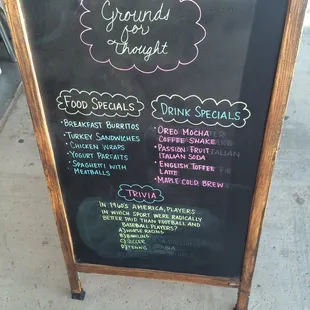 Grounds
for
Thought
Food Specials
• Breakfast Burritos
• Turkey Sandwiches
• Chicken Wraps
• Yogurt Parfaits
• Spaghetti with
Meatballs
Drink Specials
• Oreo Mocha
Coffee Shake
• Passion Fruit
Italian Soda
• English Toffee
Latte
• Maple Cold Brew
Trivia
In 1960's America, players
in which sport were radically
better paid than football and
baseball players?
A) Horse Racing
B) Bowling
C) Soccer
D) Tennis